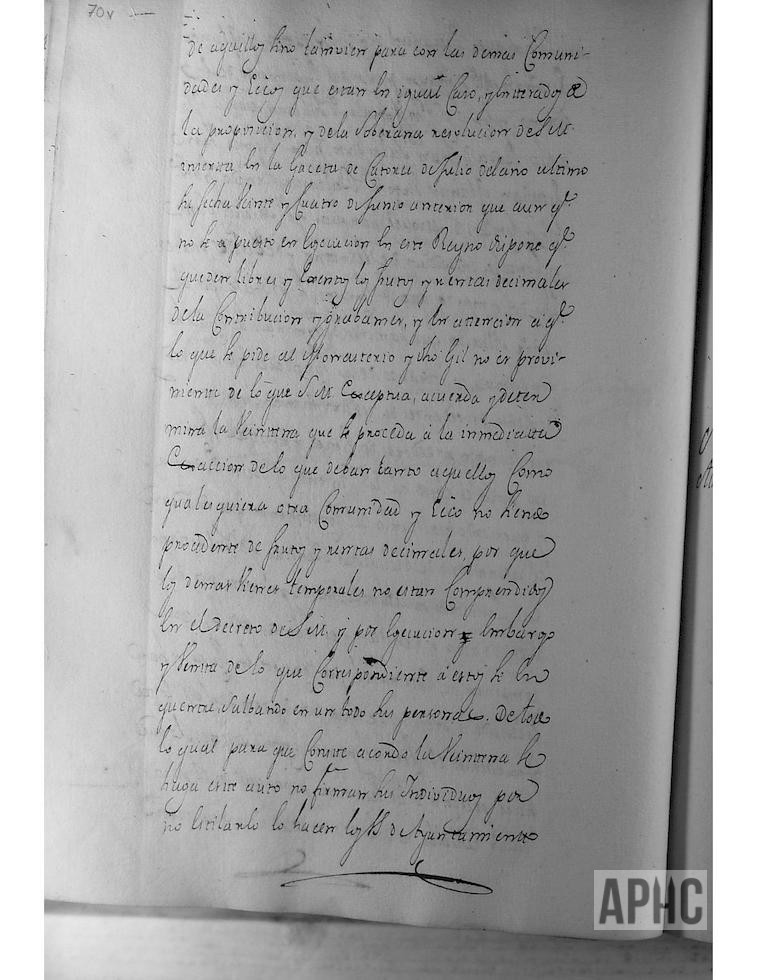 70v
de aquellos sino tamvien para con las demas Comuni-
dades y Ecc.os que estan en igual Caso, y enterados de
la proposicion, y de la Soberana resolucion de S. M.
inserta en la Gaceta de Catorce de Julio del año ultimo
su fecha Veinte y Cuatro de Junio anterior que aun q.e
no se a puesto en Egecucion en este Reyno dispone q.e
queden libres y Exentos los frutos y rentas decimales
de la Contribucion y grabamen, y en atencion a q.e
lo que se pide al Monasterio y dho Gil no es provi-
niente de lo que S. M. Exceptua, acuerda y deter
mina la Veintena que se proceda á la inmediata
Exaccion de lo que deban tanto aquellos Como
qualesquiera otra Comunidad y Ecco no siendo
procedente de frutos y rentas decimales, por que
los demas Vienes temporales no estan Comprendidos
en el decreto de S. M. y por Egecucion y Embargo
y Venta de lo que Correspondiente á estos se en
quentre, Salbando en un todo sus personas. De todo
lo qual para que Conste acordo la Veintena se
haga este auto no firman sus Individuos por
no Estilarlo lo hacen los SS. de Ayuntamiento
APHC